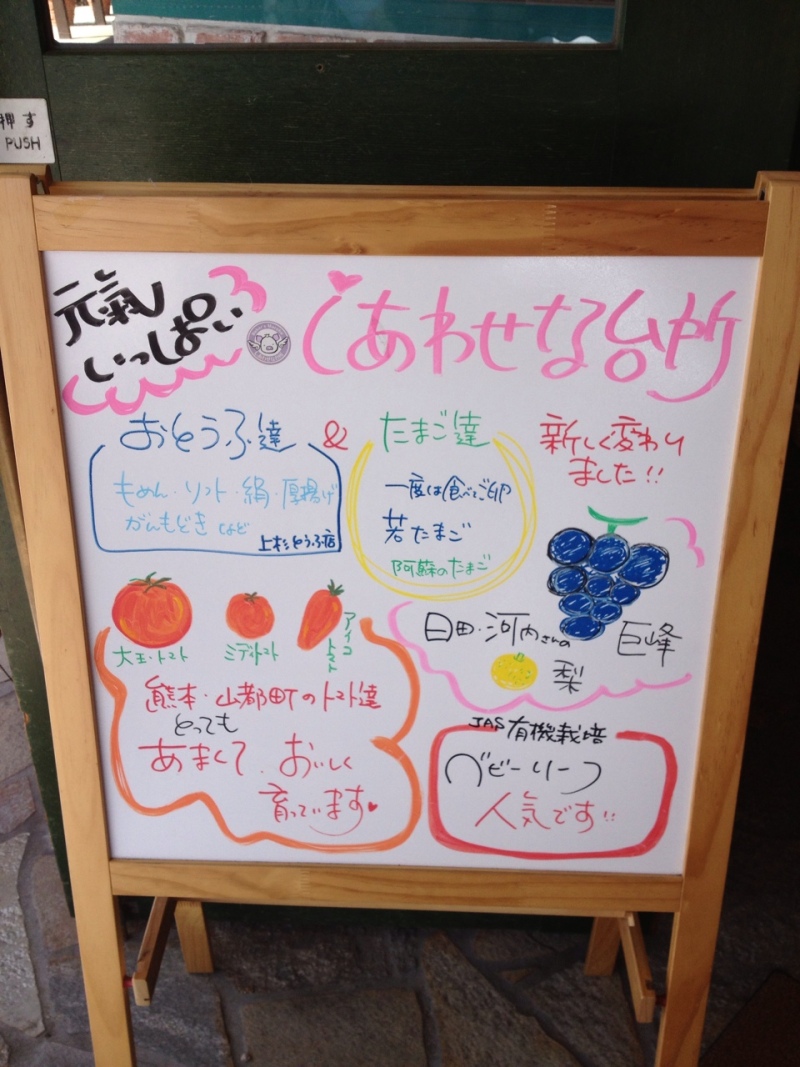 押す
PUSH
元氣
いっぱい
しあわせな台所
おとうふ達 & たまご達
新しく変わり
ました!!
もめん・ソフト・絹・厚揚げ
がんもどき など
上杉とうふ店
一度は食べたい卵
若たまご
阿蘇のたまご
大玉・トマト
ミディトマト
アイコ
トマト
日田・河内さんの
梨
巨峰
熊本・山都町のトマト達
とっても
あまくて、おいしく
育っています
JAS有機栽培
ベビーリーフ
人気です!!